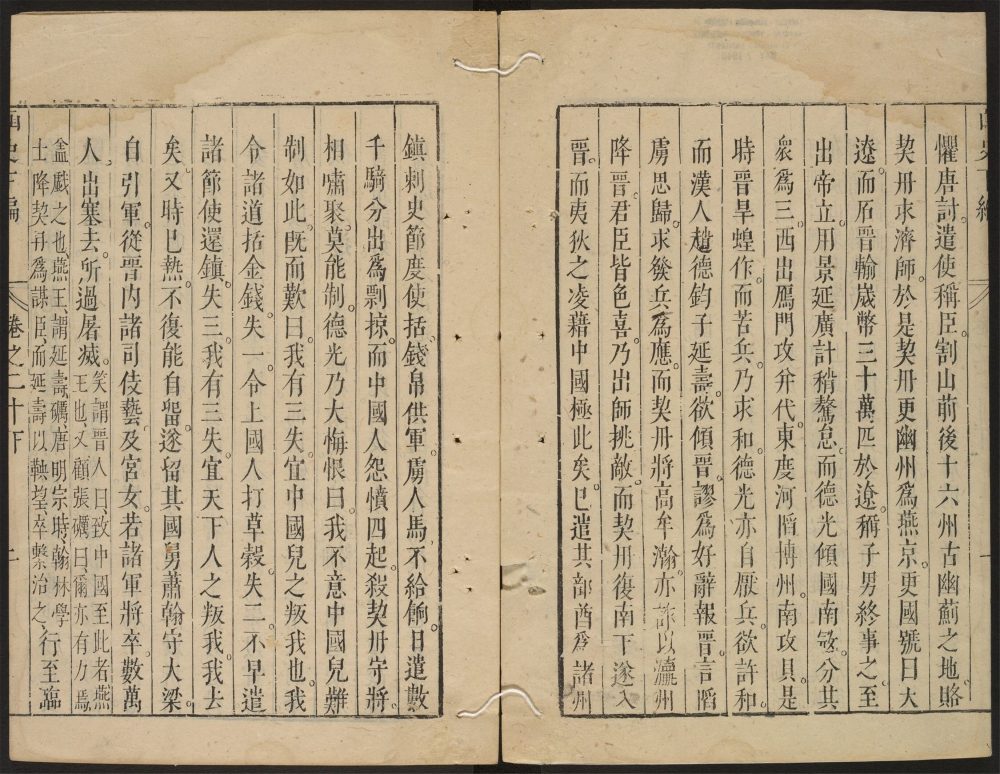 懼唐討遣使稱臣割山前後十六州古幽薊之地賂
契丹求濟師於是契丹更幽州爲燕京更國號曰大
遼而石晉輸歲幣三十萬匹於遼稱子男終事之至
出帝立用景延廣計稍驁怠而德光傾國南寇分其
衆爲三西出鴈門攻并代東度河䧟博州南攻具是
時晉旱蝗作而苦兵乃求和德光亦自厭兵欲許和
而漢人趙德鈞子延壽欲傾晉謬爲好辭報晉言䧟
虜思歸求發兵爲應而契丹將高牟瀚亦詐以瀛州
降晉君臣皆色喜乃出師挑敵而契丹復南下遂入
晉而夷狄之凌藉中國極此矣已遣其部酋爲諸州
鎮刺史節度使括錢帛供軍虜人馬不給餉日遣數
千騎分出爲剽掠而中國人怨憤四起殺契丹守將
相嘯聚莫能制德光乃大悔恨曰我不意中國兒難
制如此旣而歎曰我有三失宜中國兒之叛我也我
令諸道括金錢失一令上國人打草穀失二不早遣
諸節使還鎮失三我有三失宜天下人之叛我我去
矣又時已熱不復能自畱遂留其國舅蕭翰守大梁
自引軍從晉內諸司伎藝及宮女若諸軍將卒數萬
人出塞去所過屠滅笑謂晉人曰致中國至此者燕
王也又顧張礪曰爾亦有力焉
盍戲之也燕王謂延壽礪唐明宗時翰林學
士降契丹爲謀臣而延壽以鞅望卒繫治之行至臨
史下編
卷之二十下